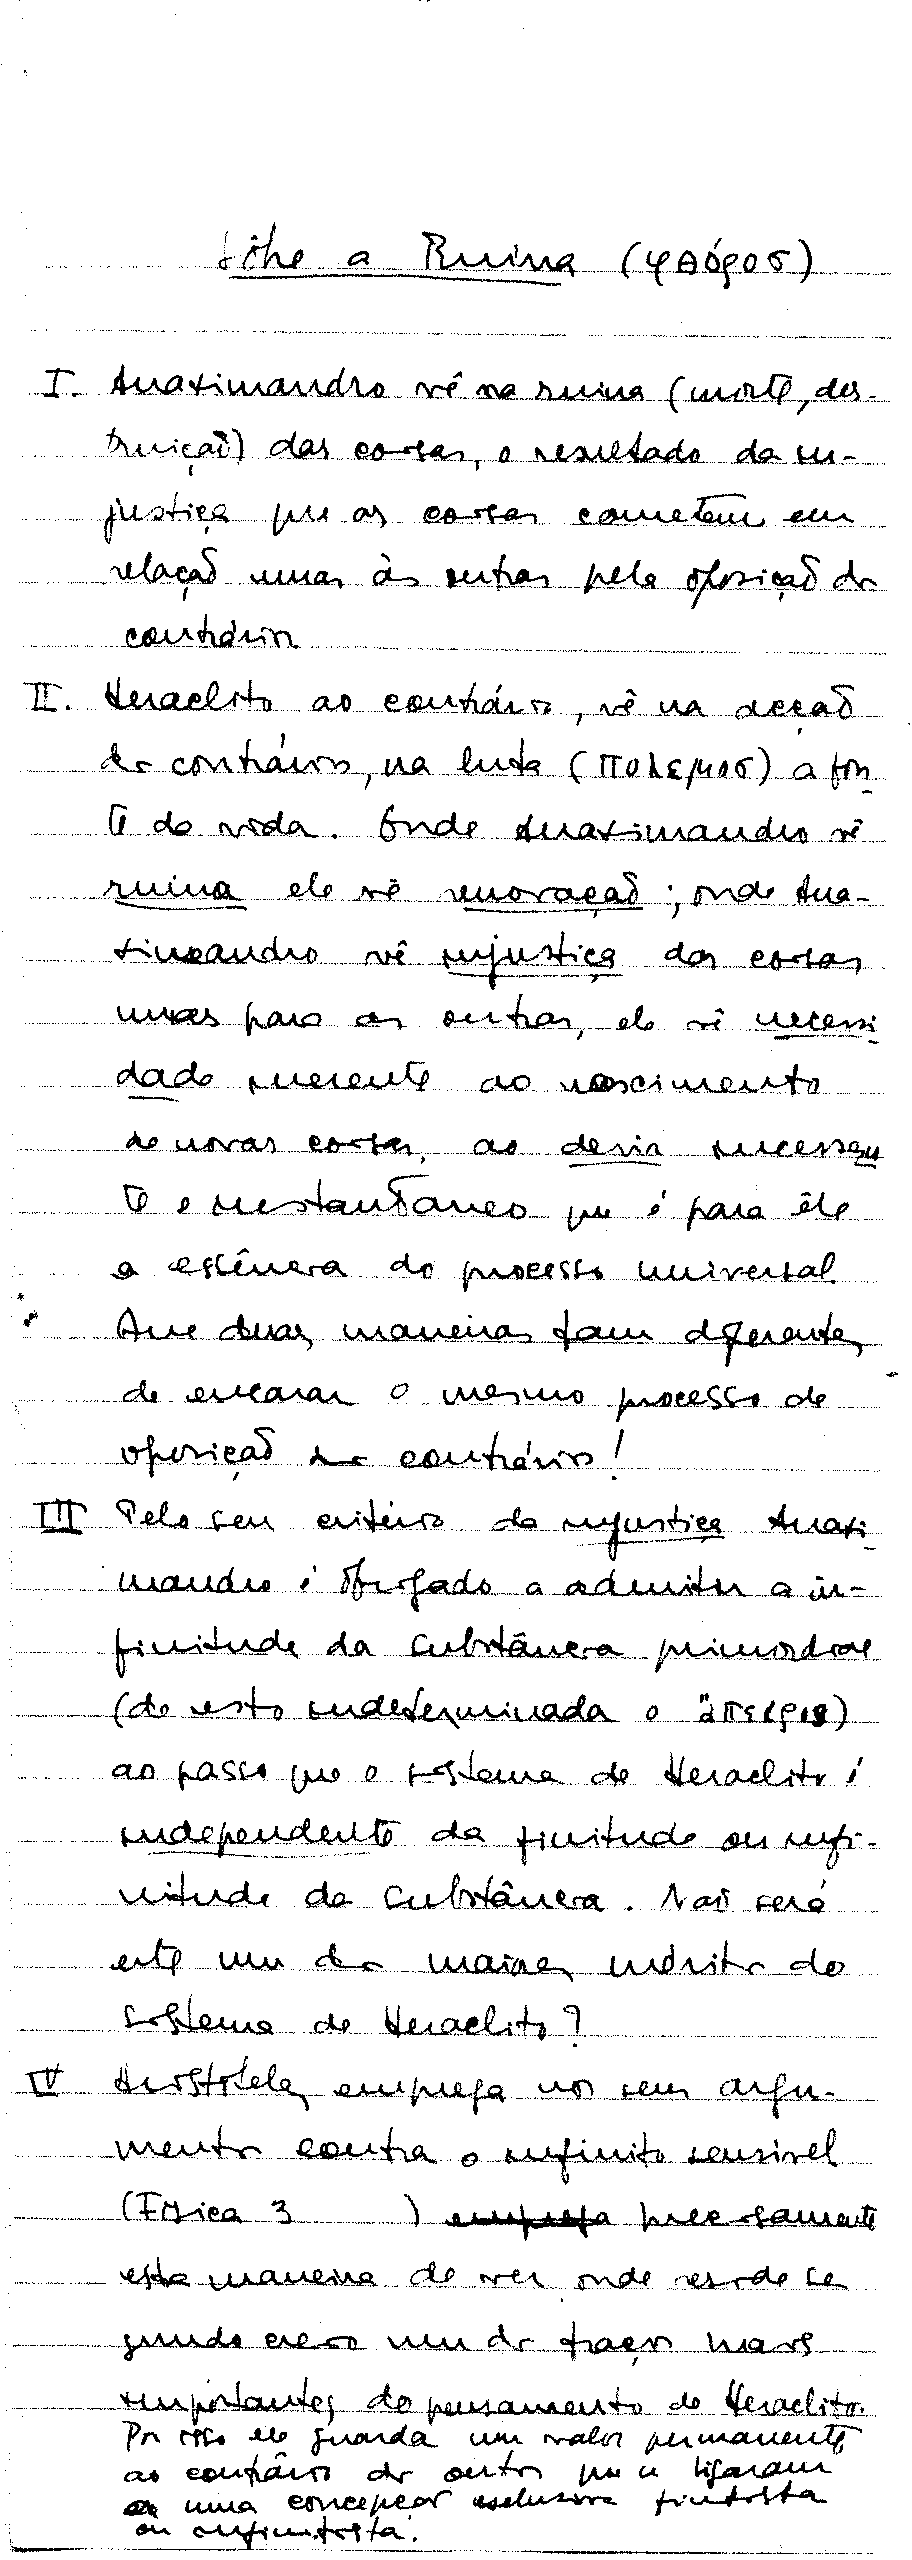 Sôbre a Ruina (φθόρος)
I. Anaximandro vê na ruina (morte, des-
truição) das coisas, o resultado da in-
justiça que as coisas cometem em
relação umas às outras pela oposição dos
contrários
II. Heraclito ao contrário, vê na acção
dos contrários, na luta (πολεμος) a fon-
te da vida. Onde Anaximandro vê
ruina ele vê renovação; onde Ana-
ximandro vê injustiça das coisas
umas para as outras, ele vê necessi-
dade inerente ao nascimento
de novas coisas, ao devir incessan
te e instantâneo que é para êle
a essência do processo universal
Que duas maneiras tam diferentes
de encarar o mesmo processo de
oposição dos contrários!
III Pelo seu critério de injustiça Anaxi-
mandro é obrigado a admitir a in-
finitude da substância primordial
(de resto indeterminada o ἄπειρος)
ao passo que o sistema de Heraclito é
independente da finitude ou infi-
nitude da substância. Não será
este um dos maiores méritos do
sistema de Heraclito?
IV Aristóteles emprega nos seus argu-
mentos contra o infinito sensível
(Física 3 ) emprega precisamente
esta maneira de ver onde reside se
gundo creio um dos traços mais
importantes do pensamento de Heraclito.
Por isso ele guarda um valor permanente
ao contrário dos outros que se ligaram
a uma concepção exclusiva finitista
ou infinitista.